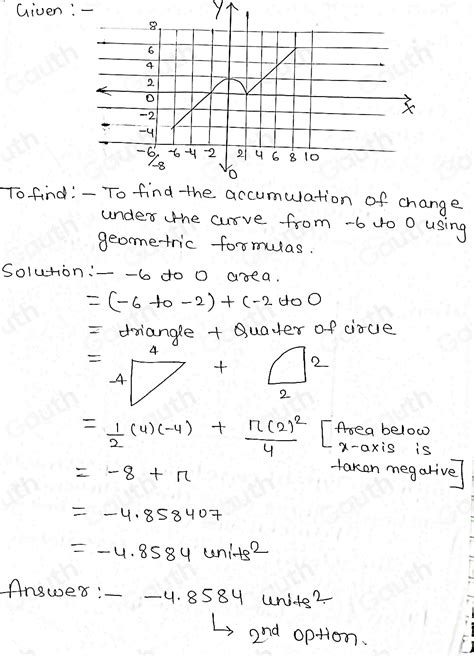 Given :-
y
8
6
4
2
0
-2
-4
-6
-8
-6 -4 -2 2 4 6 8 10
x
To find :- To find the accumulation of change
under the curve from -6 to 0 using
geometric formulas.
Solution :- -6 to 0 area.
= (-6 to -2) + (-2 to 0
= triangle + Quater of circle
= 4 -4 + 2 2
= 1/2 (4)(-4) + π(2)²/4 [Area below
x-axis is
taken negative]
= -8 + π
= -4.858407
= -4.8584 units²
Answer :- -4.8584 units².
↳ 2nd option.